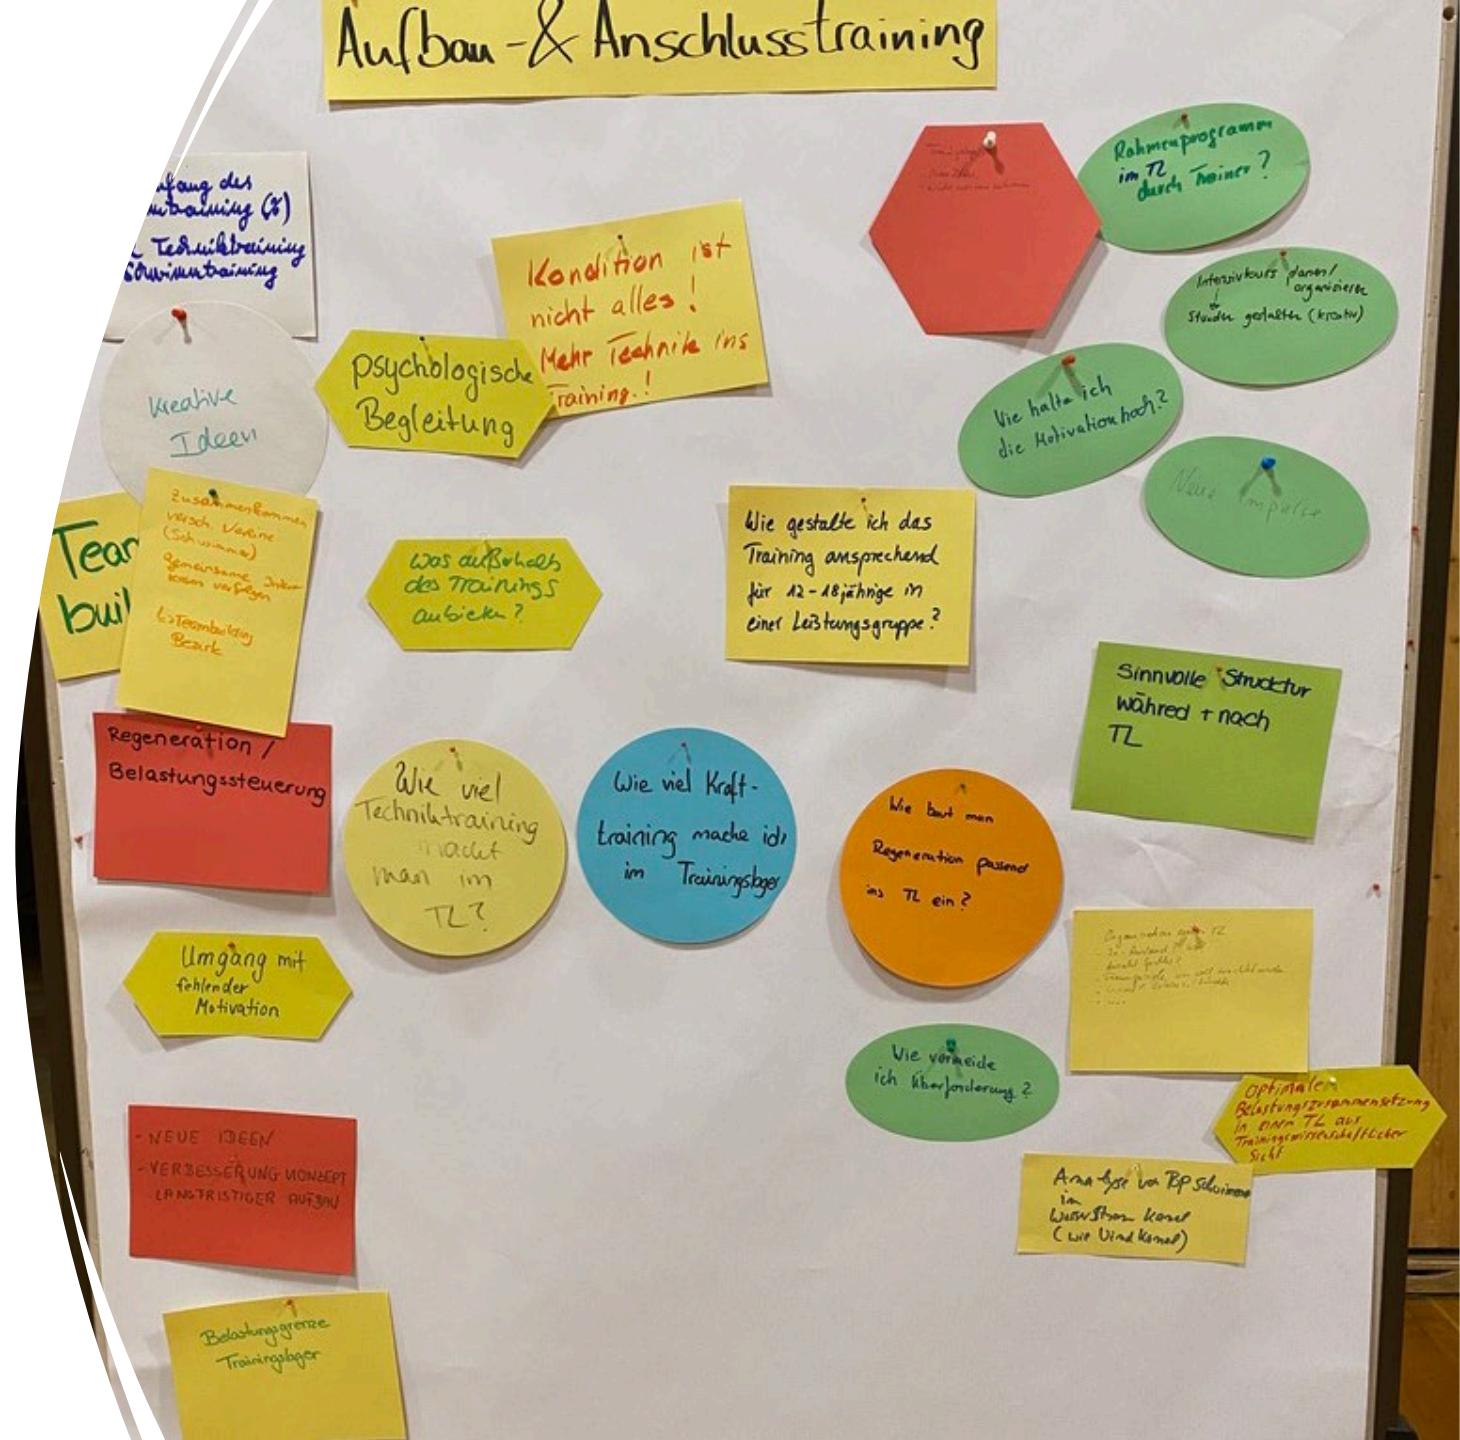 Aufbau-& Anschlusstraining
fang des
training (%)
Techniktraining
Schwimmtraining
Kreative
Ideen
psychologische
Begleitung
Kondition ist
nicht alles!
Mehr Technik ins
Training!
Rahmenprogramm
im TL
durch Trainer?
Intensivkurs planen/
organisieren
Stunden gestalten (kreativ)
Wie halte ich
die Motivation hoch?
Neue Impulse
Team
buil
Zusammenkommen
versch. Vereine
(Schwimmer)
gemeinsame
verfolgen
↳Teambuilding
Bezirk
Was außerhalb
des Trainings
anbieten?
Wie gestalte ich das
Training ansprechend
für 12-18jährige in
einer Leistungsgruppe?
Sinnvolle Struktur
währed + nach
TL
Regeneration /
Belastungssteuerung
Wie viel
Techniktraining
macht
man im
TL?
Wie viel Kraft-
training mache ich
im Trainingslager
Wie baut man
Regeneration passend
ins TL ein?
Umgang mit
fehlender
Motivation
Organisation TL
Wie vermeide
ich Überforderung?
optimale
Belastungszusammensetzung
in einem TL aus
Trainingswissenschaftlicher
Sicht
- NEUE IDEEN
- VERBESSERUNG KONZEPT
LANGFRISTIGER AUFBAU
Analyse von Top Schwimmern
im
Wasser Strom Kanal
(wie Wind Kanal)
Belastungsgrenze
Trainingslager